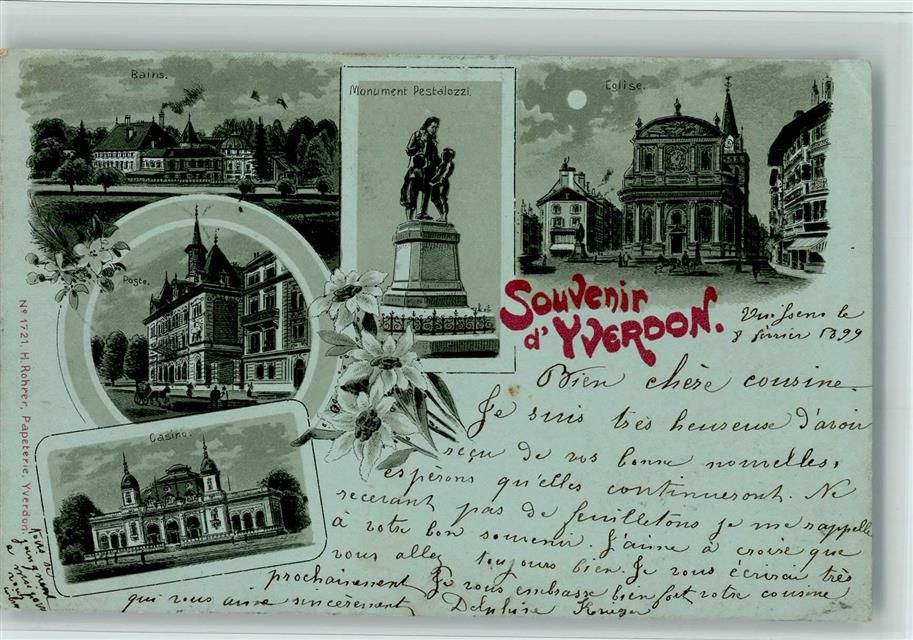 Bains.
Monument Pestalozzi.
Eglise.
Poste.
Casino.
Souvenir
d'YVERDON.
No 1721 H. Rohrer, Papeterie, Yverdon.
Vuissens le
8 février 1899
Bien chère cousine.
Je suis très heureuse d'avoir
reçu de vos bonne nouvelles,
espérons qu'elles continueront. Ne
recevant pas de feuilletons je me rappelle
à votre bon souvenir. J'aime à croire que
vous allez toujours bien. Je vous écrirai très
prochainement Je vous embrasse bien fort votre cousine
qui vous aime sincèrement Delphine